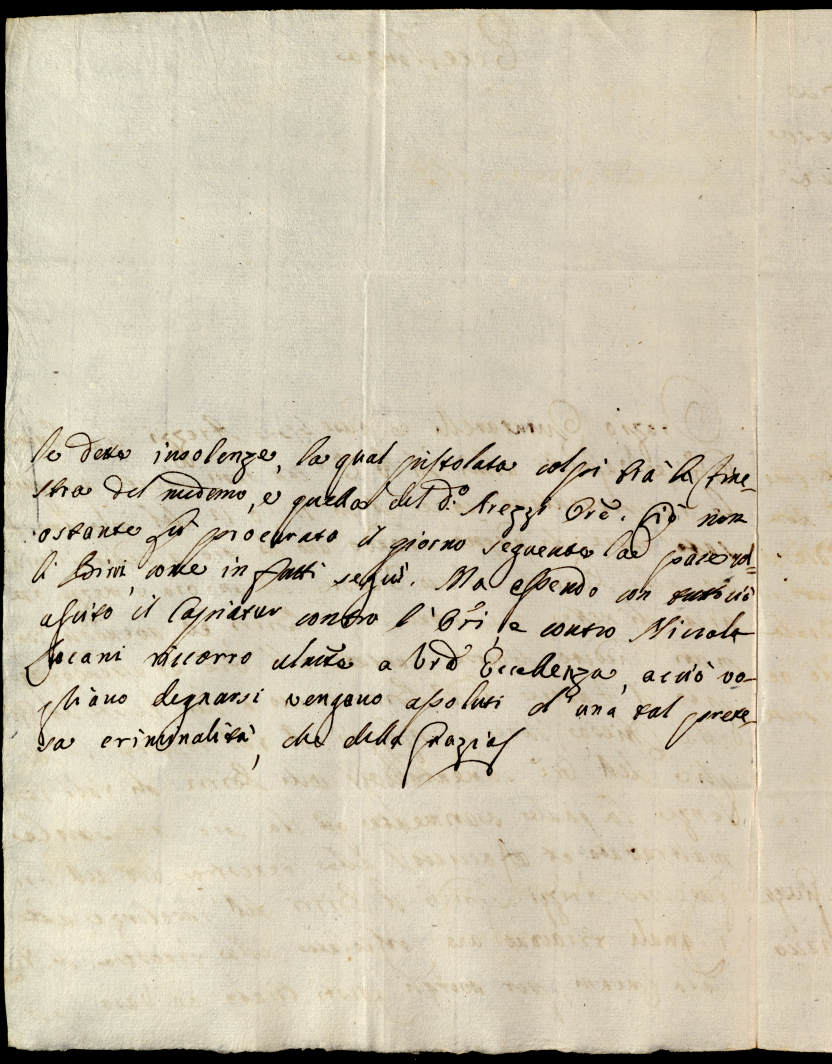 le dette insolenze, la qual pistolata colpì trà la fine-
stra del medemo, e quella del d.º Arezzi Orē. Ciò non
ostante fù procurato il giorno seguente la pace
li Birri, come in fatti seguì. Ma essendo con tutto ciò
uscito il Capiatur contro l'Ori, e contro Niccolò
ricorro a Vrā Eccellenza, acciò vo-
gliano degnarsi vengano assoluti d'una tal prete-
sa criminalità, che della Grazia